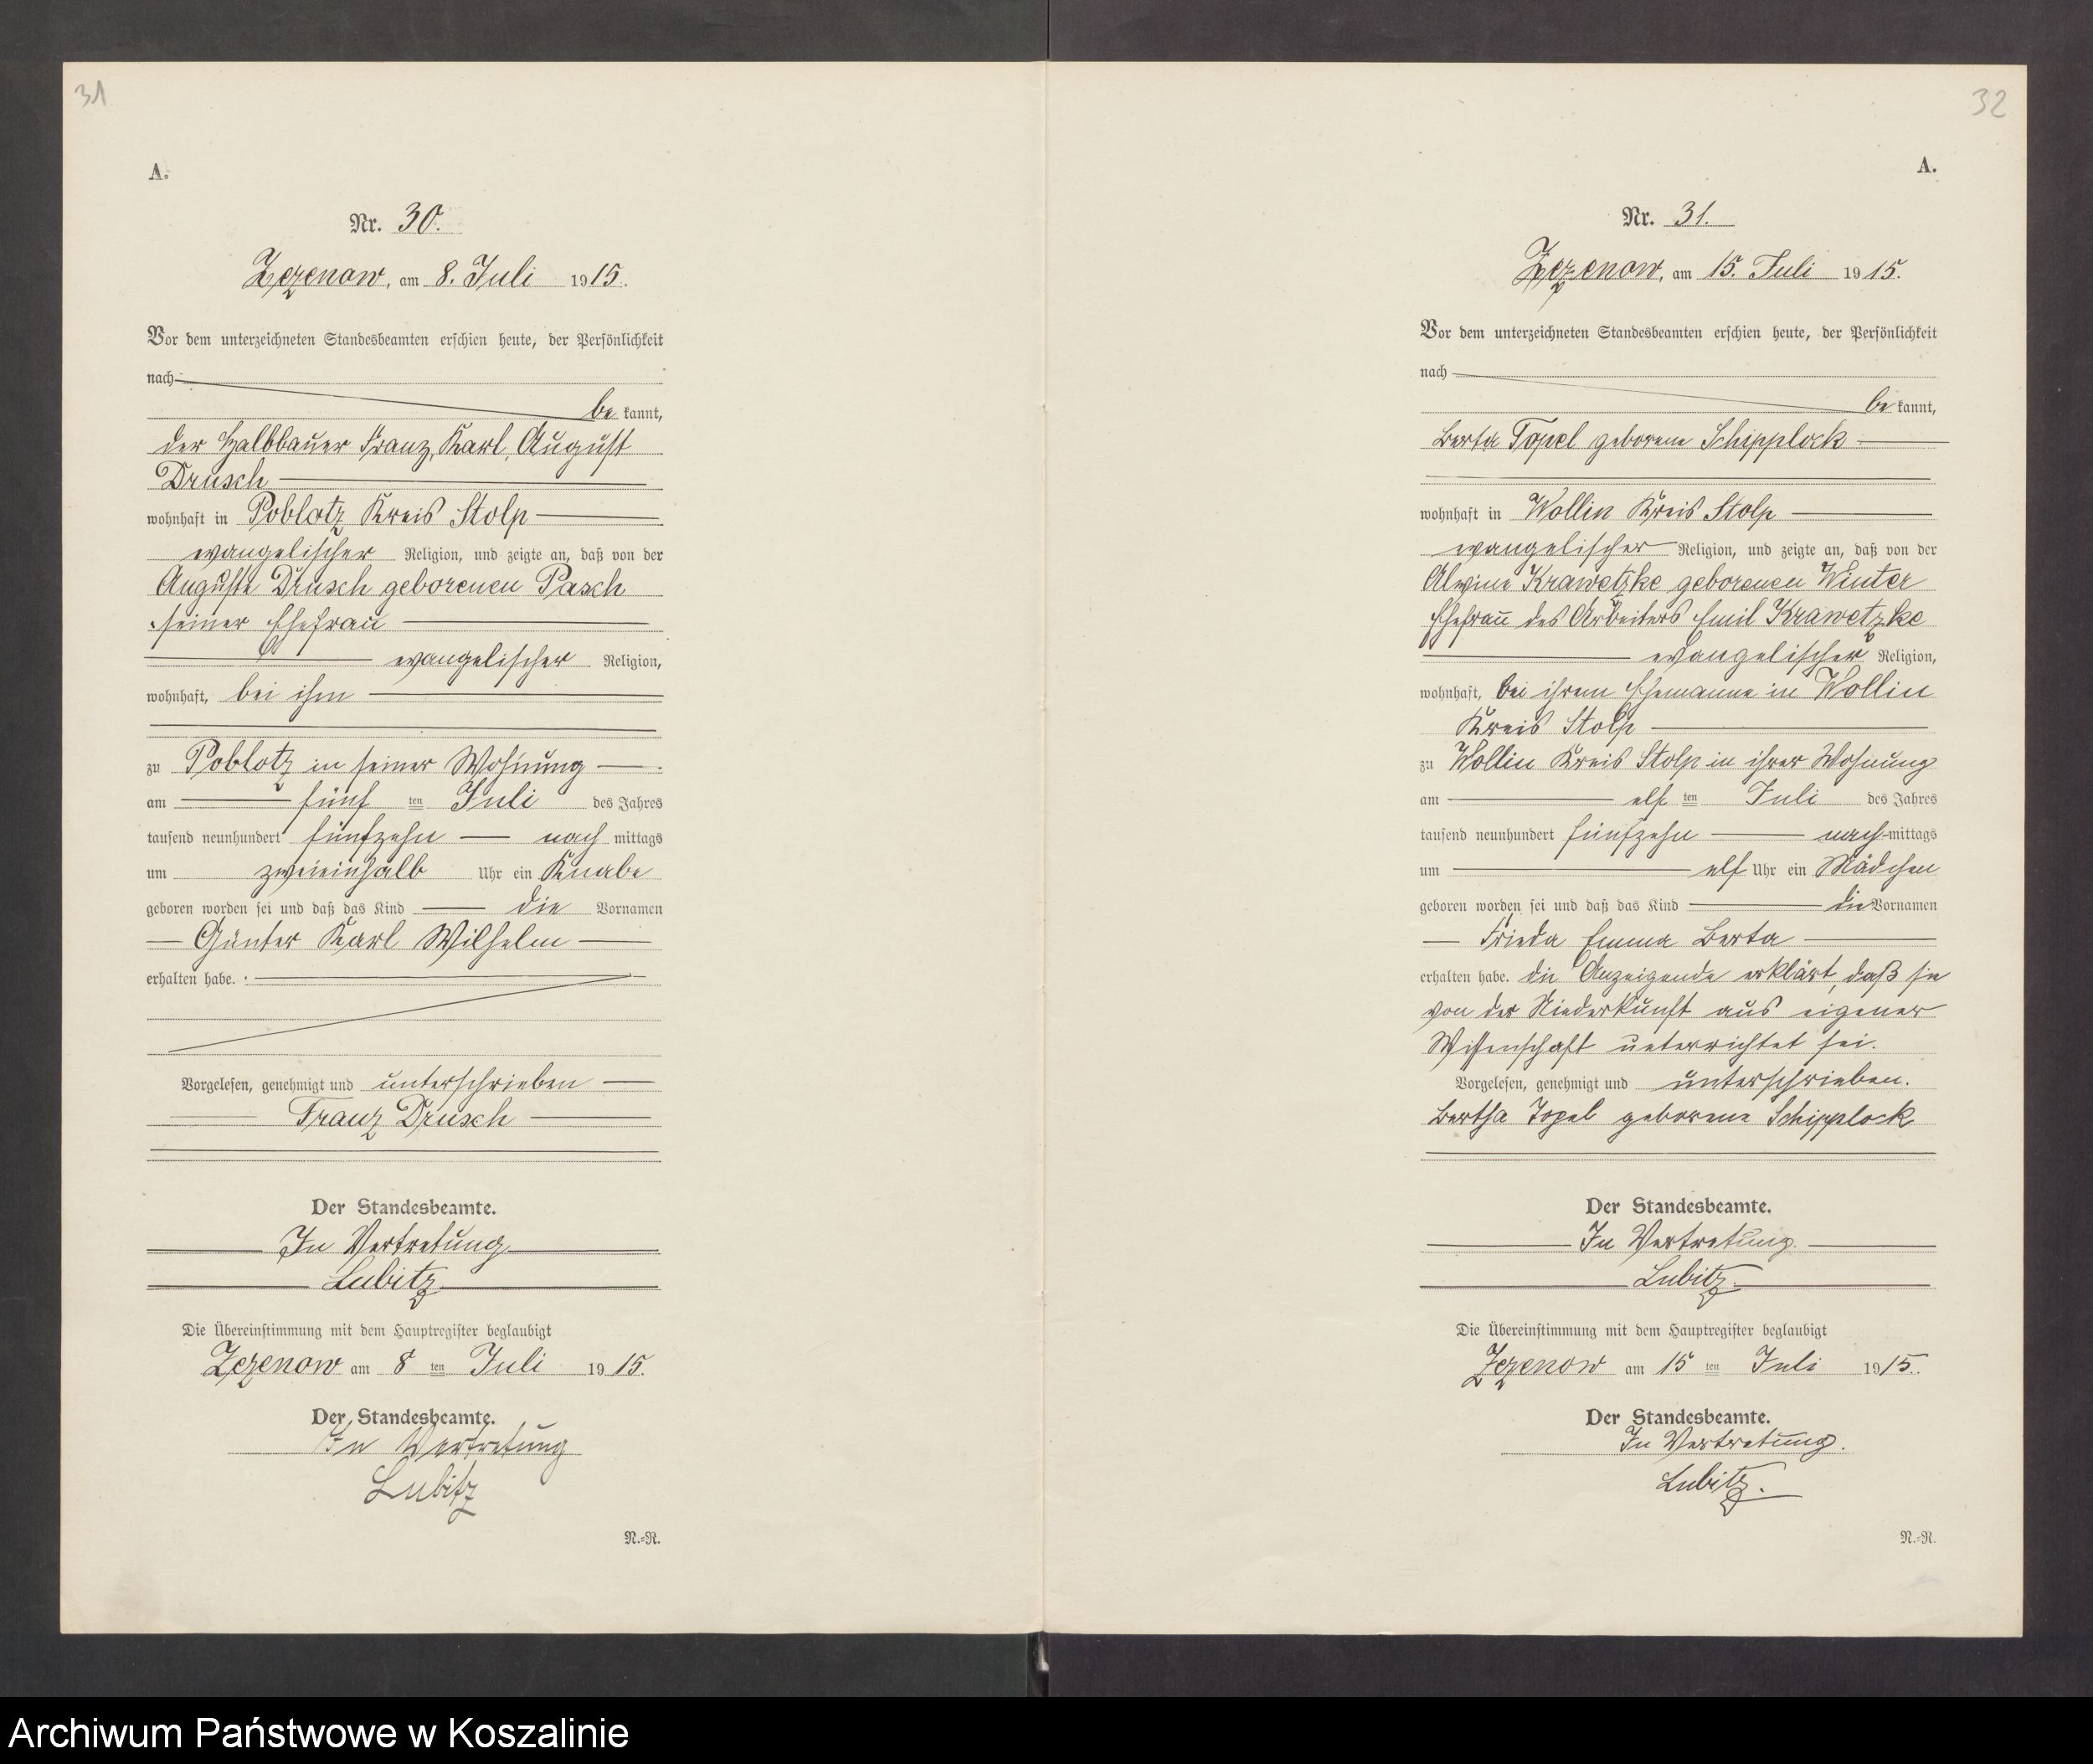 31
A.
Nr. 30.
Zezenow, am 8. Juli 1915.
Vor dem unterzeichneten Standesbeamten erschien heute, der Persönlichkeit
nach
be kannt,
der Halbbauer Franz, Karl, August
Drusch
wohnhaft in Poblotz Kreis Stolp
evangelischer Religion, und zeigte an, daß von der
Auguste Drusch geborenen Pasch
seiner Ehefrau
evangelischer Religion,
wohnhaft, bei ihm
zu Poblotz in seiner Wohnung
am fünf ten Juli des Jahres
tausend neunhundert fünfzehn nach mittags
um zweieinhalb Uhr ein Knabe
geboren worden sei und daß das Kind die Vornamen
Günter Karl Wilhelm
erhalten habe.
Vorgelesen, genehmigt und unterschrieben
Franz Drusch
Der Standesbeamte.
In Vertretung
Lubitz
Die Übereinstimmung mit dem Hauptregister beglaubigt
Zezenow am 8 ten Juli 1915.
Der Standesbeamte.
In Vertretung
Lubitz
N.=R.
32
A.
Nr. 31.
Zezenow, am 15. Juli 1915.
Vor dem unterzeichneten Standesbeamten erschien heute, der Persönlichkeit
nach
be kannt,
Berta Topel geborene Schipplock
wohnhaft in Wollin Kreis Stolp
evangelischer Religion, und zeigte an, daß von der
Alwine Krawetzke geborenen Winter
Ehefrau des Arbeiters Emil Krawetzke
evangelischer Religion,
wohnhaft, bei ihrem Ehemanne in Wollin
Kreis Stolp
zu Wollin Kreis Stolp in ihrer Wohnung
am elf ten Juli des Jahres
tausend neunhundert fünfzehn nach mittags
um elf Uhr ein Mädchen
geboren worden sei und daß das Kind die Vornamen
Frieda Emma Berta
erhalten habe. Die Anzeigende erklärt, daß sie
von der Niederkunft aus eigener
Wissenschaft unterrichtet sei.
Vorgelesen, genehmigt und unterschrieben.
Bertha Topel geborene Schipplock
Der Standesbeamte.
In Vertretung.
Lubitz.
Die Übereinstimmung mit dem Hauptregister beglaubigt
Zezenow am 15 ten Juli 1915.
Der Standesbeamte.
In Vertretung.
Lubitz.
N.=R.
Archiwum Państwowe w Koszalinie